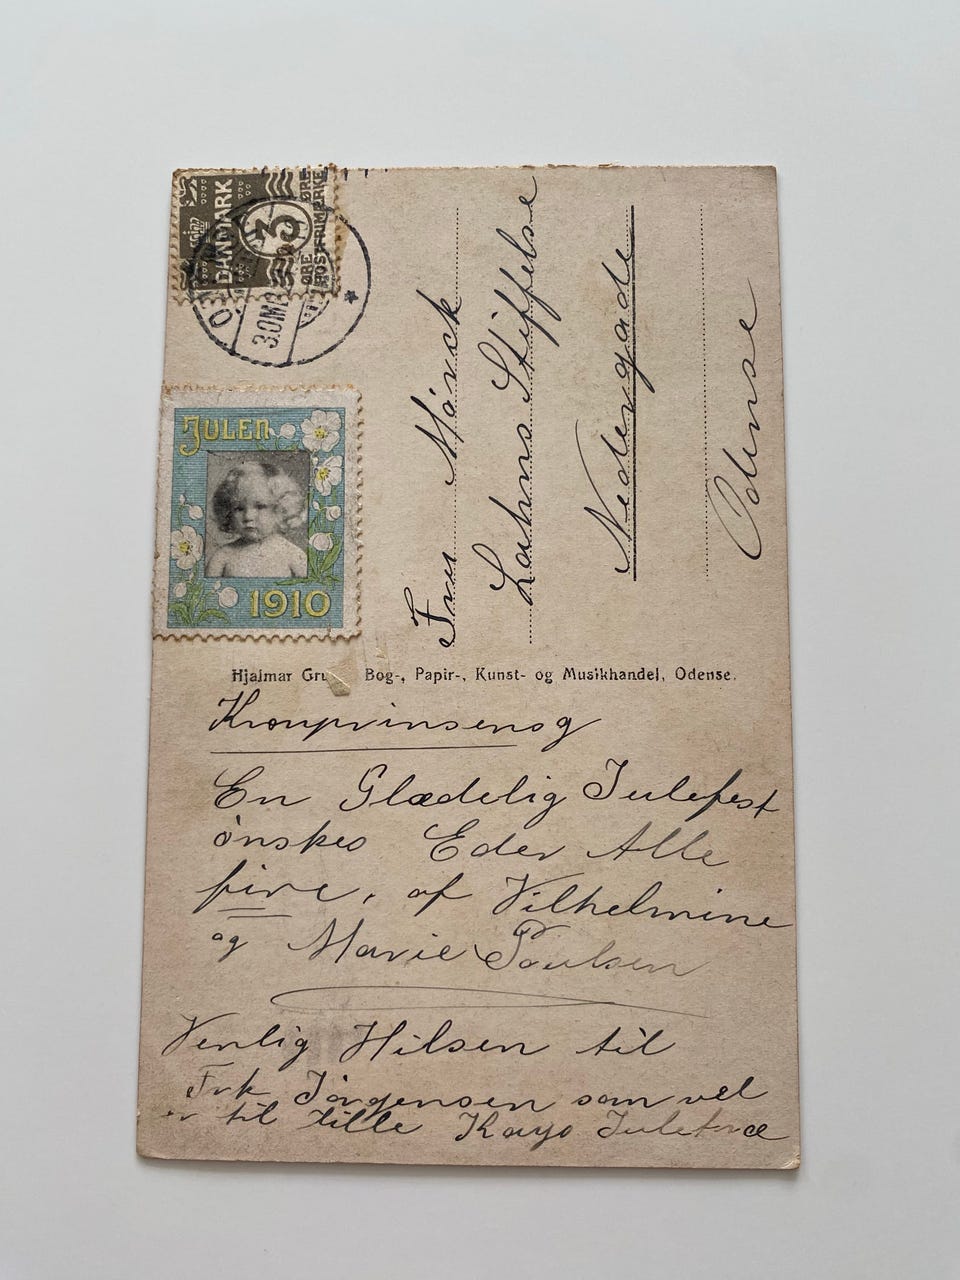 DANMARK
3
ØRE
POSTFRIMÆRKE
ØRE
JULEN
1910
Fru Mörck
Lahns Stiftelse
Nedergade
Odense
Hjalmar Bog-, Papir-, Kunst- og Musikhandel, Odense.
Kronprinsensg
En Glædelig Julefest
ønskes Eder Alle
fire, af Vilhelmine
og Marie Poulsen
Venlig Hilsen til
Frk Jörgensen som vel
er til lille Kays Juletræ